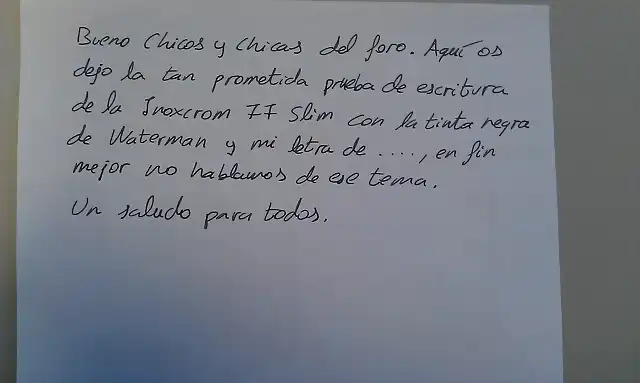 Bueno Chicos y Chicas del foro. Aquí os
dejo la tan prometida prueba de escritura
de la Inoxcrom 77 Slim con la tinta negra
de Waterman y mi letra de ...., en fin
mejor no hablamos de ese tema.
Un saludo para todos.